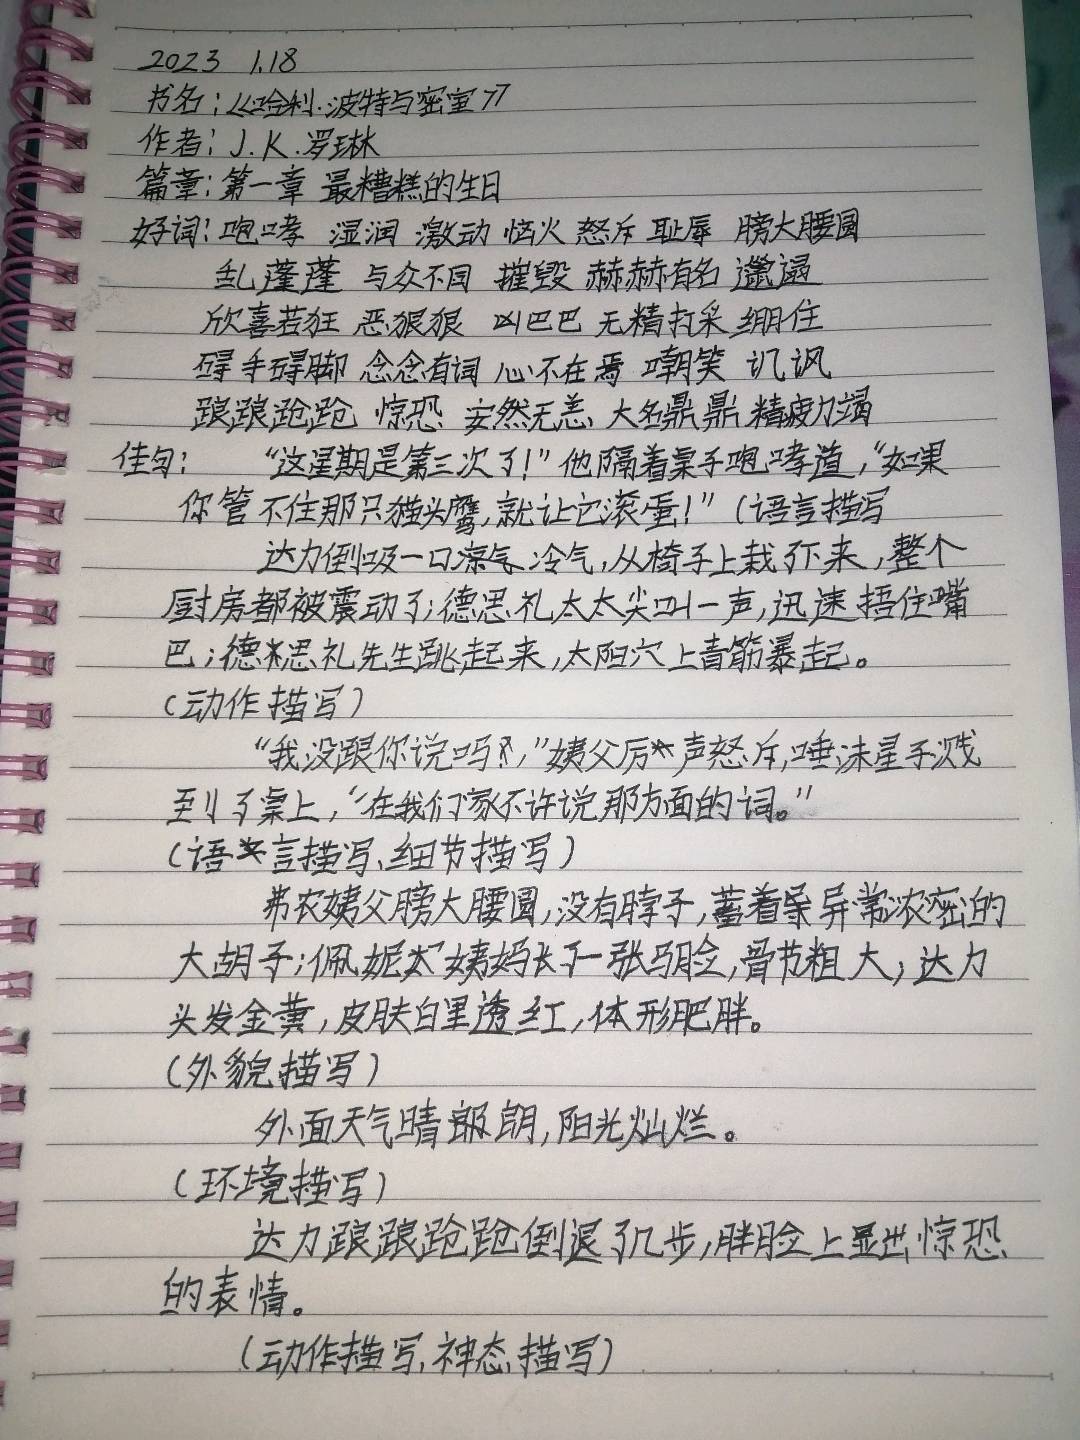 2023 1.18
书名:《哈利·波特与密室》
作者:J.K.罗琳
篇章:第一章 最糟糕的生日
好词:咆哮 湿润 激动 恼火 怒斥 耻辱 膀大腰圆
乱蓬蓬 与众不同 摧毁 赫赫有名 邋遢
欣喜若狂 恶狠狠 凶巴巴 无精打采 绷住
碍手碍脚 念念有词 心不在焉 嘲笑 讥讽
踉踉跄跄 惊恐 安然无恙 大名鼎鼎 精疲力竭
佳句: “这星期是第三次了!”他隔着桌子咆哮道,“如果
你管不住那只猫头鹰,就让它滚蛋!”(语言描写
达力倒吸一口凉气冷气,从椅子上栽下来,整个
厨房都被震动了;德思礼太太尖叫一声,迅速捂住嘴
巴;德思礼先生跳起来,太阳穴上青筋暴起。
(动作描写)
“我没跟你说吗?,”姨父厉声怒斥,唾沫星子溅
到了桌上,“在我们家不许说那方面的词。”
(语言描写、细节描写)
弗农姨父膀大腰圆,没有脖子,蓄着异常浓密的
大胡子;佩妮姨妈长了一张马脸,骨节粗大;达力
头发金黄,皮肤白里透红,体形肥胖。
(外貌描写)
外面天气晴朗,阳光灿烂。
(环境描写)
达力踉踉跄跄倒退了几步,胖脸上显出惊恐
的表情。
(动作描写,神态描写)